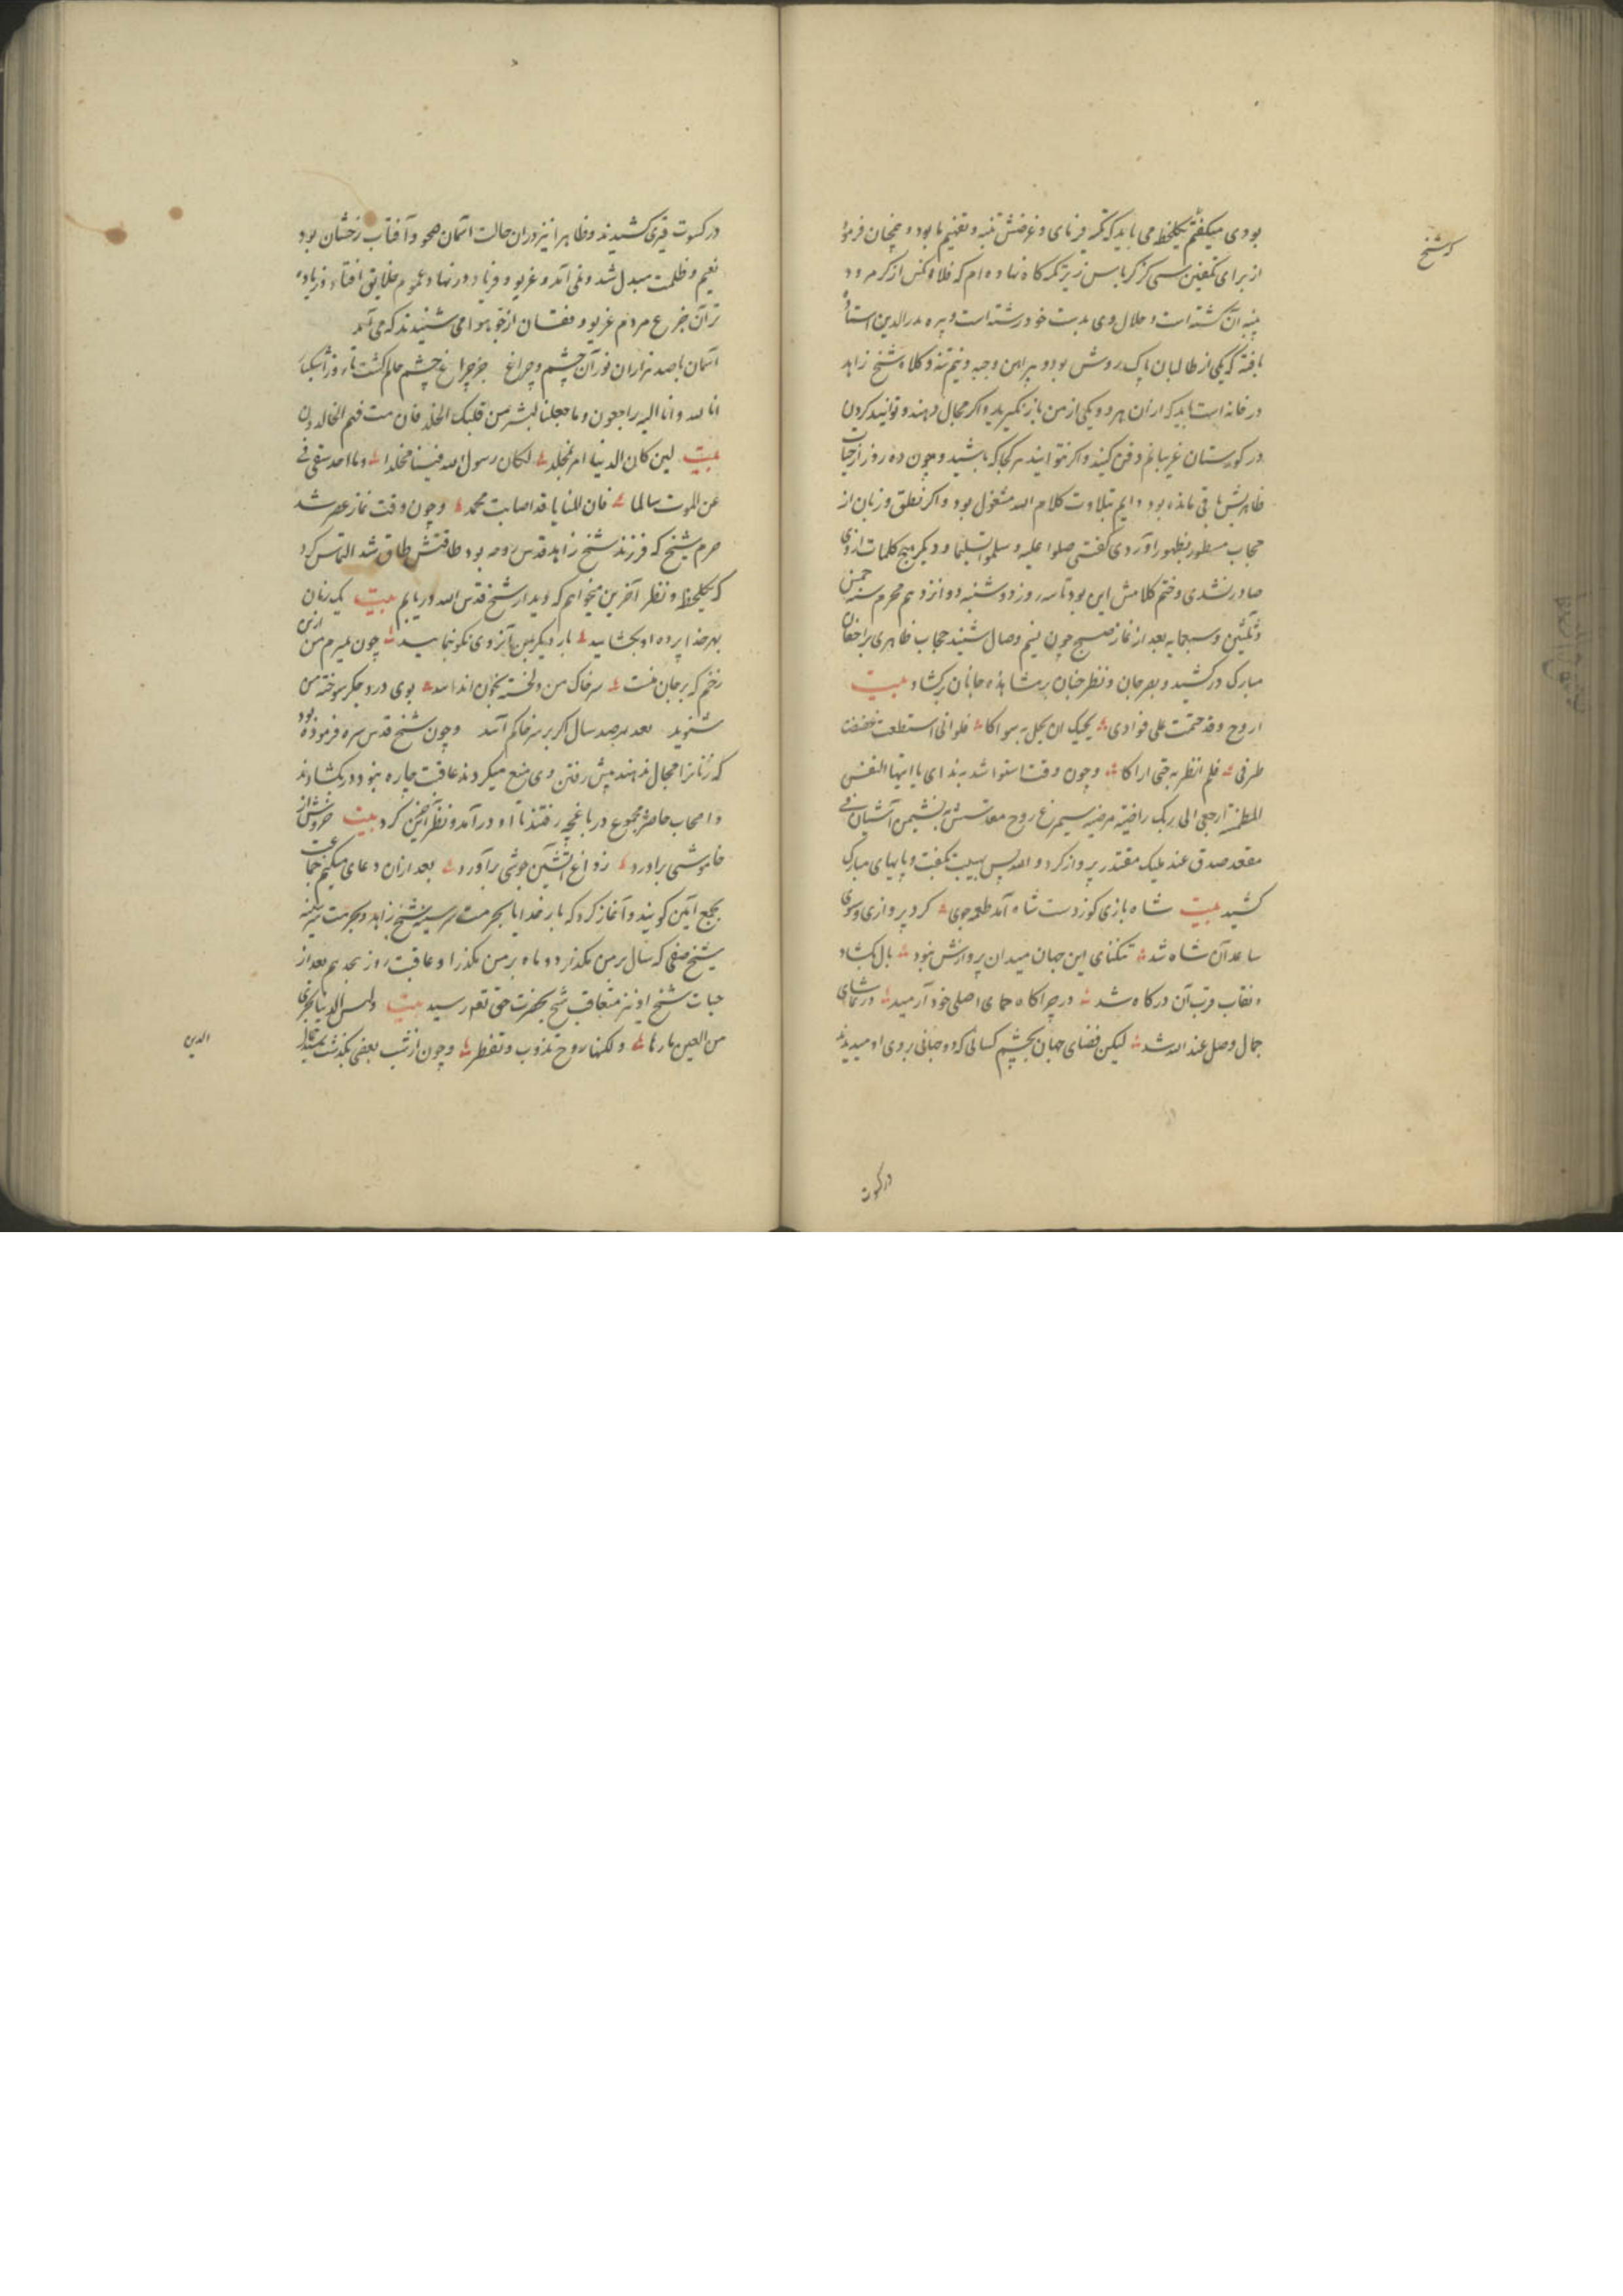 که شیخ
بودی میکفتم یکلحظه می باید که تکیه فرمای و غرضش تنبیه و تفهیم ما بود و همچنان فرمود
از برای تکفین سی کز کرباس زیر تکیه کاه نهاده ام که فلاوکنس از کرمرود
پنبه آن کشته است و حلال وی بدست خود رشته است و پیره بدرالدین استاد
بافته که یکی از طالبان پاک روش بود و پیراهن وجبه و نیم تنه و کلاه شیخ زاهد
در خانه است باید که ازان هر دو یکی از من باز نکیرید و اکر مجال دهند و توانید کردن
در کورستان غریبانم دفن کنید و اکر نتوانید هر کجا که باشید و چون ده روز از حیات
ظاهریش باقی مانده بود دایم بتلاوت کلام الله مشغول بود و اکر نطق و زبان از
حجاب مسطور بظهور آوردی کفتی صلوا علیه و سلموا تسلیما و دیکر هیچ کلمات ازوی
صادر نشدی و ختم کلامش این بود تا سه روز دوشنبه دوازدهم محرم سنه خمس
و ثلثین و سبعمایه بعد از نماز صبح چون نسیم وصال شنید حجاب ظاهری را حفان
مبارک درکشید و بصر جان و نظر جنان بر مشاهده جانان برکشاد بیت
اروح وقد ختمت علی فوادی بحبک ان یحل به سواکا فلو انی استطعت غضضت
طرفی فلم انظر به حتی اراکا وجون وقت استوا شد بندای یا ایتها النفس
المطمئنة ارجعی الی ربک راضیة مرضیه سیمرغ روح مقدسش به نشیمن آشیان فی
مقعد صدق عند ملیک مقتدر پرواز کرد و الله بس بهیبت بکفت و پایهای مبارک
کشید بیت شاه بازی کوز دست شاه آمد طعمه جوی کرد پروازی و سوی
ساعد آن شاه شد تنکنای این جهان میدان پروازش نبود بال بکشاد
و نقاب قرب آن درکاه شد در چراکاه حمای اصلی خود آرمید در تماشای
جمال وصل عند الله شد لیکن فضای جهان بچشم کسانی که دو جهانی بروی او میدیدند
در کسوت
در کسوت قیری کشیدند و ظاهرا نیز دران حالت آسمان صحو و آفتاب رخشان بود
بغیم و ظلمت مبدل شد و نمی آمد و غریو و فریاد در نهاد عموم خلایق افتاد و زیاده
تر آن جزع مردم غریو و فغان از جو هوا می شنیدند که می آمد
آسمان با صد هزاران نور آن چشم و چراغ جز چراغ چشم عالم کشت
انا لله و انا الیه راجعون وما جعلنا لبشر من قبلک الخلد فان مت فهم الخالدون
بیت لین کان الدنیا امر مخلد لکان رسول الله فینا مخلدا وما احد یبقی فی
عن الموت سالما فان المنایا قد اصابت محمد و چون وقت نماز عصر شد
حرم شیخ که فرزند شیخ زاهد قدس روحه بود طاقتش طاق شد التماس کرد
که یکلحظه و نظر آخرین میخواهم که دیدار شیخ قدس الله دریابم بیت یک زمان
بهر خدا پرده او بکشایید بار دیکر بمن آنروی نکو بنمایید چون بمیرم من ازین
زخم که بر جان منست سر خاک من دلخسته بخون اندایید بوی درد جکر سوخته من
شنوید بعد هر صد سال اکر بر سر خاکم آیید و چون شیخ قدس سره فرموده بود
که زنانرا مجال ندهند پیش رفتن وی منع میکردند عاقبت چاره نبود در بکشادند
و اصحاب حاضر مجموع در باغچه رفتند تا او درآمد و نظر آخرین کرد بیت خروش از
خاموشی برآورد ز داغ آتشین جوشی برآورد بعد ازان دعای میکنم جماعت
بجمع آمین کویند و آغاز کرد که بار خدایا بحرمت سر سینه شیخ زاهد و بحرمت سینه
شیخ صفی که سال بر من مکذار و دو ماه بر من مکذرا و عاقبت روز بعد از
حیات شیخ او نیز متعاقب شیخ بحضرت حق تعالی رسید بیت ولیس الذی یجری
من العین ماءها ولکنها روح تذوب و تقطر و چون از شب بعضی بکذشت
الدین